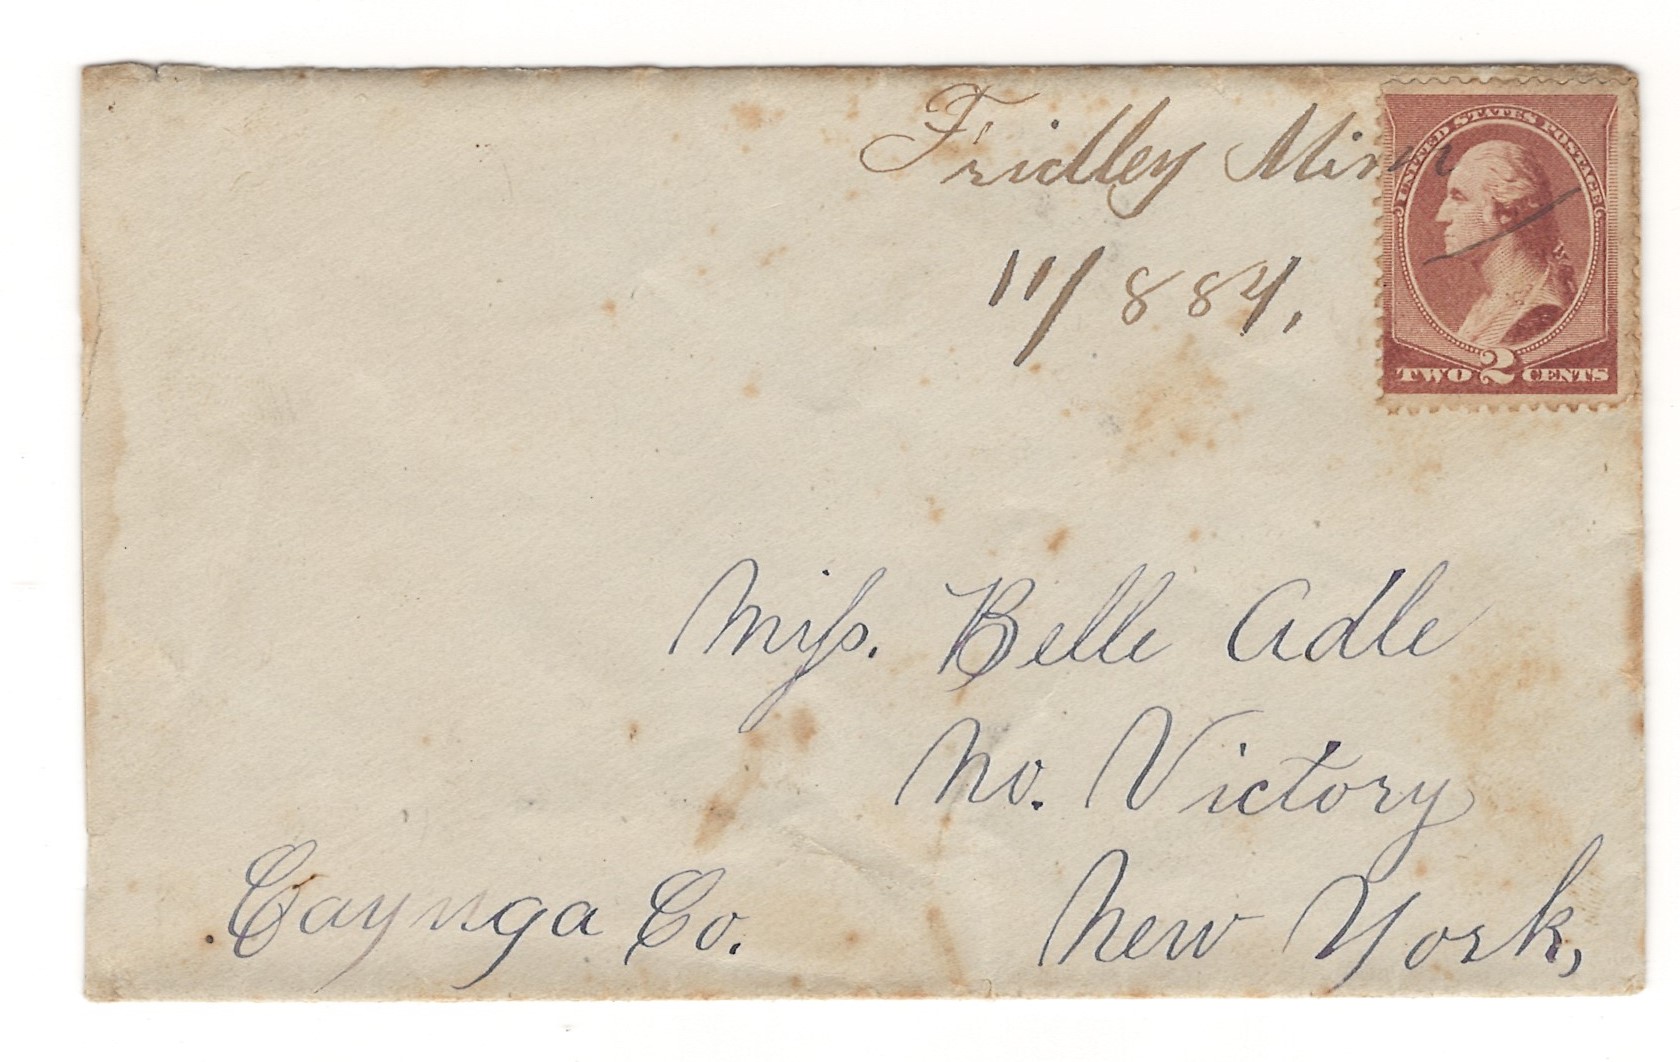 Fridley Minn
11/884,
UNITED STATES POSTAGE
TWO 2 CENTS
Miss. Belle Adle
No. Victory
Cayuga Co.
New York,